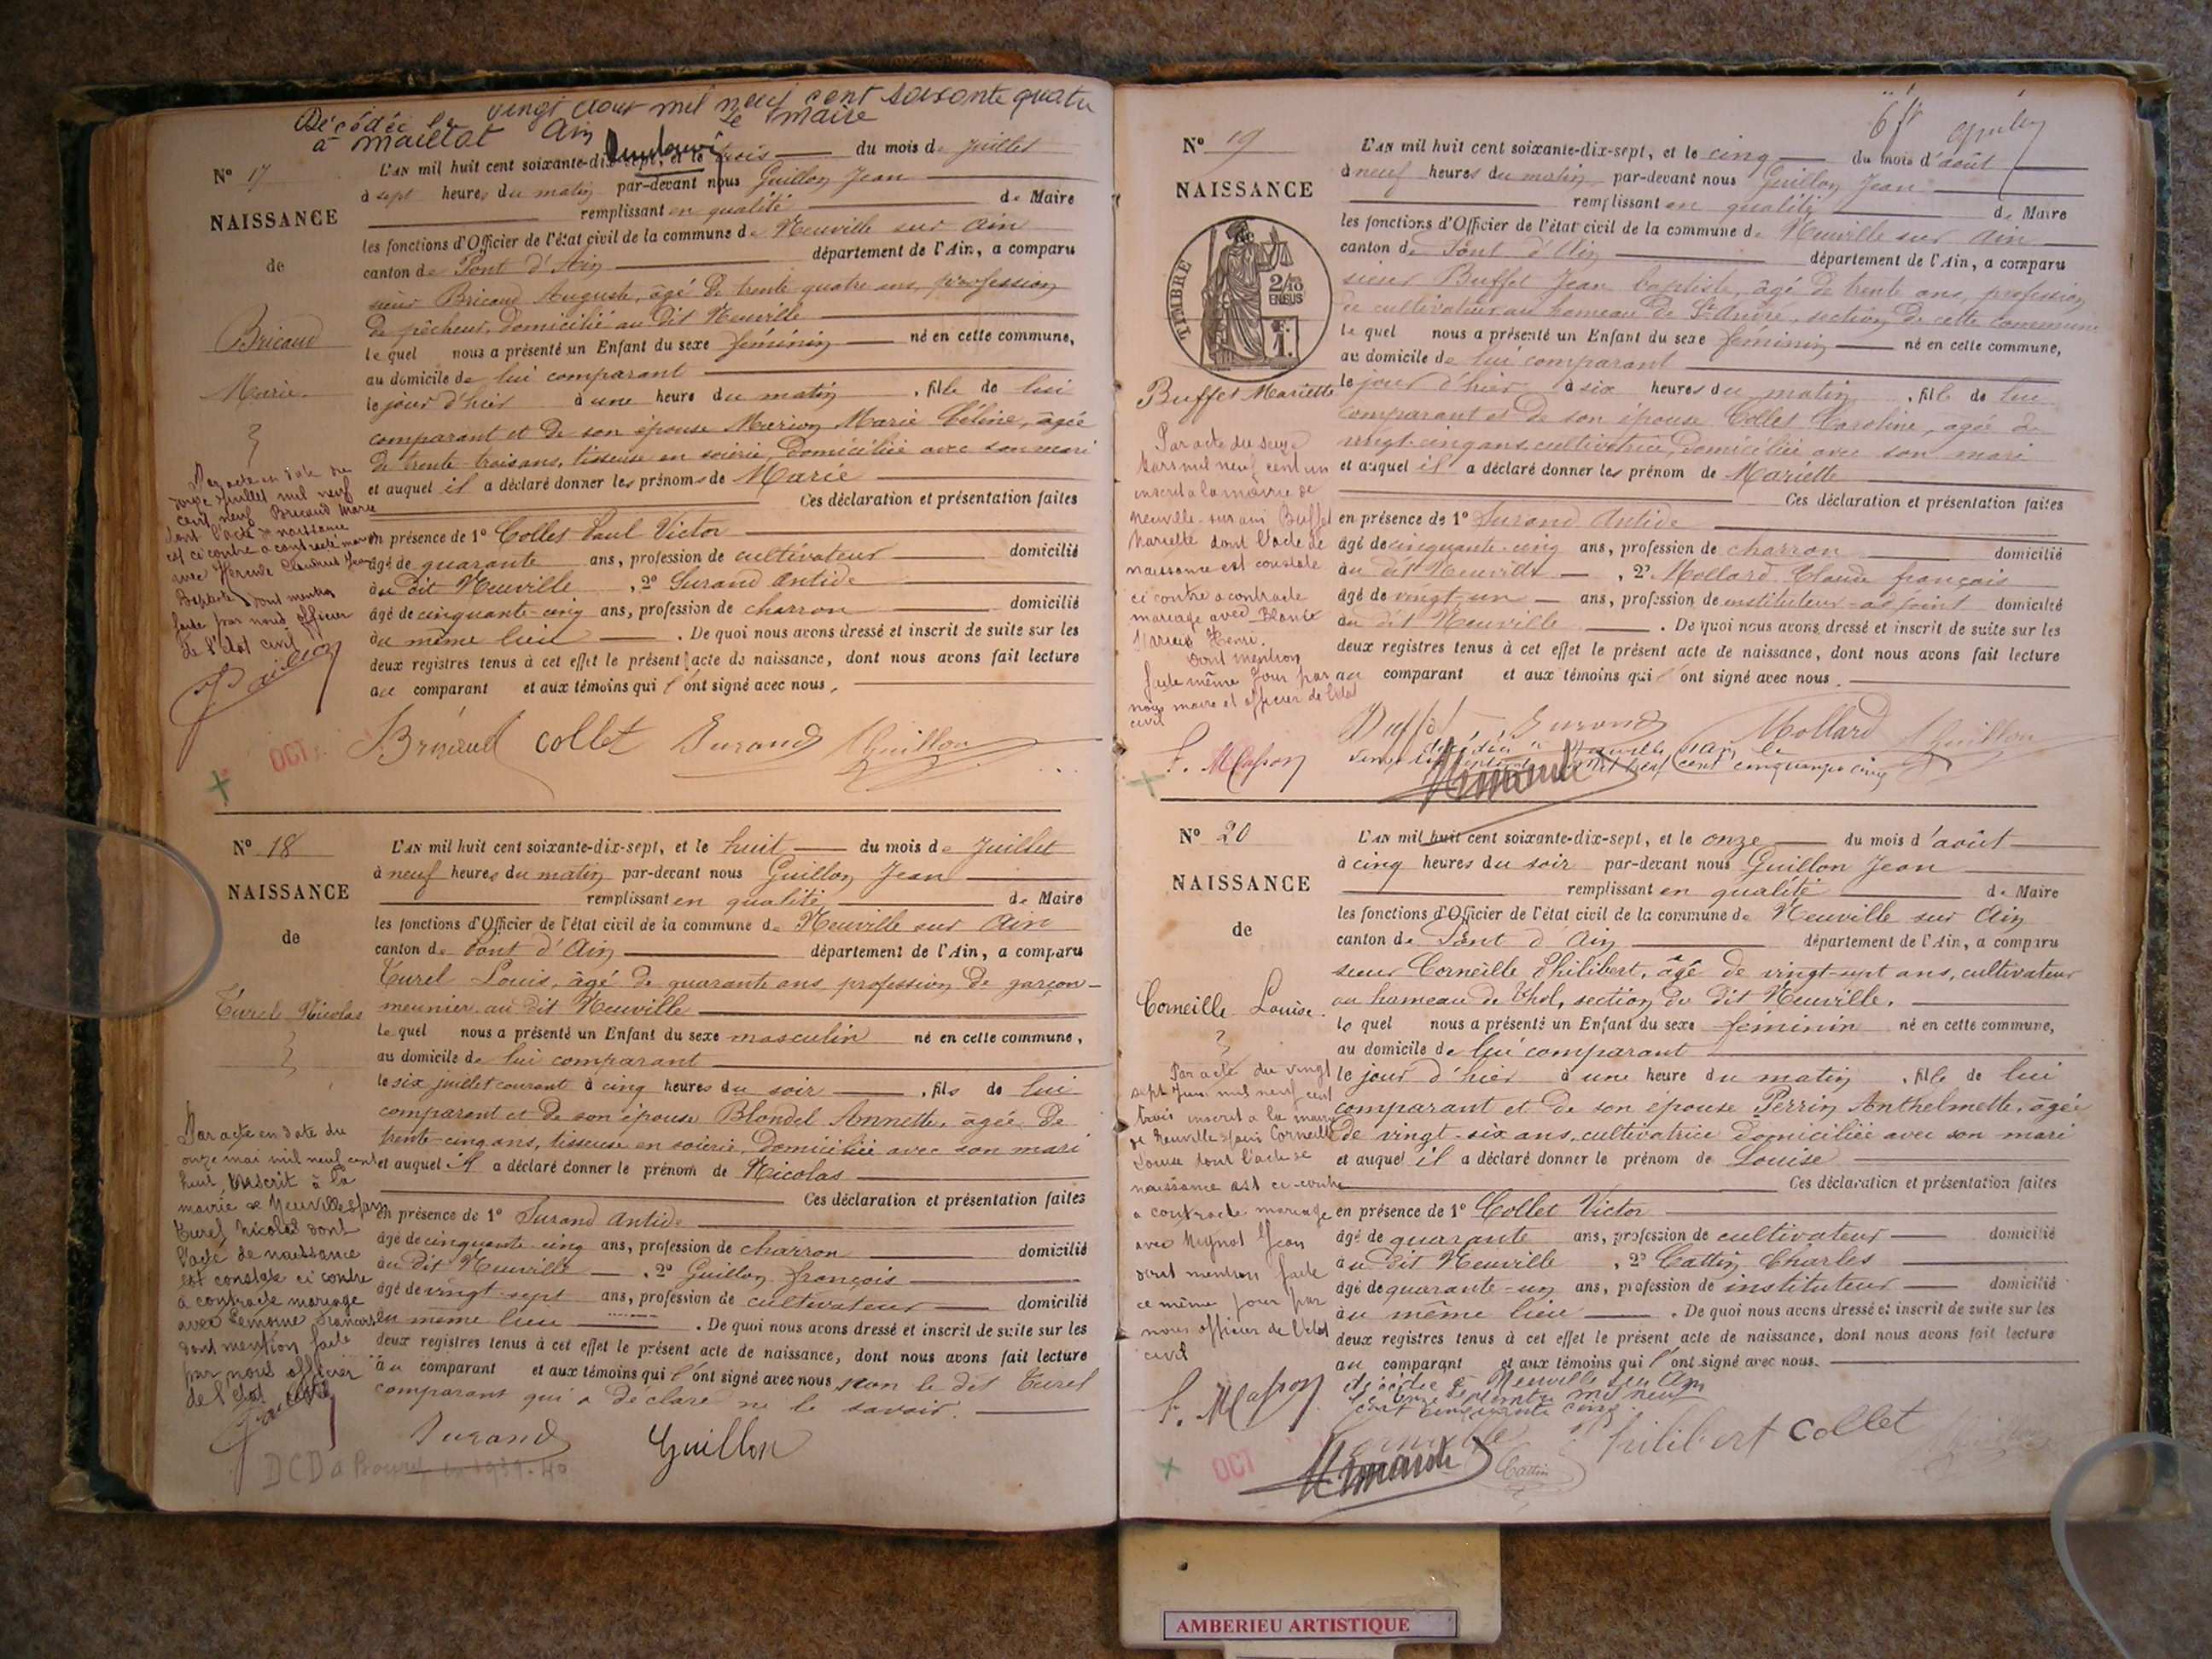 Décédée le vingt aout mil neuf cent soixante quatre
à maillat Ain Le maire
N° 17
NAISSANCE
de
Bricaud
Marie
L'AN mil huit cent soixante-dix-sept, et le trois du mois de juillet
à sept heures du matin par-devant nous Guillon Jean
remplissant en qualité de Maire
les fonctions d'Officier de l'état civil de la commune de Neuville sur Ain
canton de Pont d'Ain département de l'Ain, a comparu
sieur Bricaud Auguste, âgé de trente quatre ans, profession
de pêcheur, domicilié au dit Neuville
le quel nous a présenté un Enfant du sexe féminin né en cette commune,
au domicile de lui comparant
le jour d'hier à une heure du matin, fille de lui
comparant et de son épouse Marion Marie Céline, âgée
de trente-trois ans, tisseuse en soierie, domiciliée avec son mari
et auquel il a déclaré donner les prénoms de Marie
Ces déclaration et présentation faites
en présence de 1° Collet Paul Victor
âgé de quarante ans, profession de cultivateur domicilié
au dit Neuville, 2° Durand Antide
âgé de cinquante-cinq ans, profession de charron domicilié
au même lieu. De quoi nous avons dressé et inscrit de suite sur les
deux registres tenus à cet effet le présent acte de naissance, dont nous avons fait lecture
au comparant et aux témoins qui l'ont signé avec nous.
Par acte en date du
onze juillet mil neuf
cent neuf Bricaud Marie
dont l'acte de naissance
est ci contre a contracté mariage
avec Claudius Jean
Baptiste dont mention
faite par nous officier
de l'état civil
Bricaud Collet Durand Guillon
OCT
N° 18
NAISSANCE
de
Turel Nicolas
L'AN mil huit cent soixante-dix-sept, et le huit du mois de juillet
à neuf heures du matin par-devant nous Guillon Jean
remplissant en qualité de Maire
les fonctions d'Officier de l'état civil de la commune de Neuville sur Ain
canton de Pont d'Ain département de l'Ain, a comparu
Turel Louis, âgé de quarante ans, profession de garçon-
meunier au dit Neuville
le quel nous a présenté un Enfant du sexe masculin né en cette commune,
au domicile de lui comparant
le six juillet courant à cinq heures du soir, fils de lui
comparant et de son épouse Blondel Annette, âgée de
trente-cinq ans, tisseuse en soierie, domiciliée avec son mari
et auquel il a déclaré donner le prénom de Nicolas
Ces déclaration et présentation faites
en présence de 1° Durand Antide
âgé de cinquante-cinq ans, profession de charron domicilié
au dit Neuville, 2° Guillon françois
âgé de vingt-sept ans, profession de cultivateur domicilié
au même lieu. De quoi nous avons dressé et inscrit de suite sur les
deux registres tenus à cet effet le présent acte de naissance, dont nous avons fait lecture
au comparant et aux témoins qui l'ont signé avec nous, non le dit Turel
comparant qui a déclaré ne le savoir.
Par acte en date du
onze mai mil neuf cent
huit inscrit à la
mairie de Neuville s/ain
Turel Nicolas dont
l'acte de naissance
est constaté ci contre
a contracté mariage
avec Lemoine
dont mention faite
par nous officier
de l'état civil
Durand Guillon
DCD à en 1939-40
N° 19
NAISSANCE
de
TIMBRE
2/10
EN SUS
F.
1.
Buffet Mariette
L'AN mil huit cent soixante-dix-sept, et le cinq du mois d'août
à neuf heures du matin par-devant nous Guillon Jean
remplissant en qualité de Maire
les fonctions d'Officier de l'état civil de la commune de Neuville sur Ain
canton de Pont d'Ain département de l'Ain, a comparu
sieur Buffet Jean baptiste, âgé de trente ans, profession
de cultivateur au hameau de St André, section de cette commune
le quel nous a présenté un Enfant du sexe féminin né en cette commune,
au domicile de lui comparant
le jour d'hier à six heures du matin, fille de lui
comparant et de son épouse Collet Caroline, âgée de
vingt-cinq ans, cultivatrice, domiciliée avec son mari
et auquel il a déclaré donner les prénom de Mariette
Ces déclaration et présentation faites
en présence de 1° Durand Antide
âgé de cinquante-cinq ans, profession de charron domicilié
au dit Neuville, 2° Mollard Claude françois
âgé de vingt-un ans, profession de instituteur-adjoint domicilié
au dit Neuville. De quoi nous avons dressé et inscrit de suite sur les
deux registres tenus à cet effet le présent acte de naissance, dont nous avons fait lecture
au comparant et aux témoins qui l'ont signé avec nous.
Par acte du seize
mars mil neuf cent un
inscrit à la mairie de
Neuville-sur-ain Buffet
Mariette dont l'acte de
naissance est constaté
ci contre a contracté
mariage avec
Henri.
dont mention
faite même jour par
nous maire et officier de l'état
civil
Buffet Durand Mollard Guillon
cent cinquante cinq
N° 20
NAISSANCE
de
Corneille Louise.
L'AN mil huit cent soixante-dix-sept, et le onze du mois d'août
à cinq heures du soir par-devant nous Guillon Jean
remplissant en qualité de Maire
les fonctions d'Officier de l'état civil de la commune de Neuville sur Ain
canton de Pont d'Ain département de l'Ain, a comparu
sieur Corneille Philibert, âgé de vingt-sept ans, cultivateur
au hameau de Thol, section du dit Neuville.
le quel nous a présenté un Enfant du sexe féminin né en cette commune,
au domicile de lui comparant
le jour d'hier à une heure du matin, fille de lui
comparant et de son épouse Perrin Anthelmette, âgée
de vingt-six ans, cultivatrice domiciliée avec son mari
et auquel il a déclaré donner le prénom de Louise
Ces déclaration et présentation faites
en présence de 1° Collet Victor
âgé de quarante ans, profession de cultivateur domicilié
au dit Neuville, 2° Cattin Charles
âgé de quarante-un ans, profession de instituteur domicilié
au même lieu. De quoi nous avons dressé et inscrit de suite sur les
deux registres tenus à cet effet le présent acte de naissance, dont nous avons fait lecture
au comparant et aux témoins qui l'ont signé avec nous.
Par acte du vingt
sept Juin mil neuf cent
trois inscrit à la mairie
de Neuville s/ain Corneille
Louise dont l'acte de
naissance est ci-contre
a contracté mariage
avec Mignot Jean
dont mention faite
ce même jour par
nous officier de l'état
civil
décédée à Neuville sur Ain
le onze décembre mil neuf
cent cinquante cinq
Corneille Philibert Collet
Cattin
OCT
AMBERIEU ARTISTIQUE